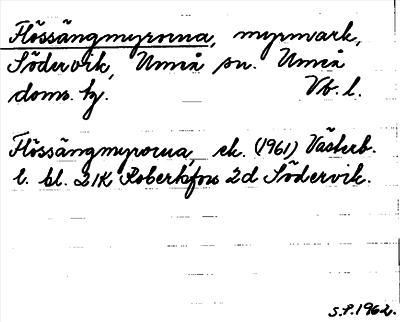 Flössängmyrorna, myrmark,
Södervik, Umeå sn. Umeå
doms. hg. Vb. l.
Flössängmyrorna, ek. (1961) Västerb.
l. bl. 21K Robertsfors 2d Södervik.
S.P. 1962.